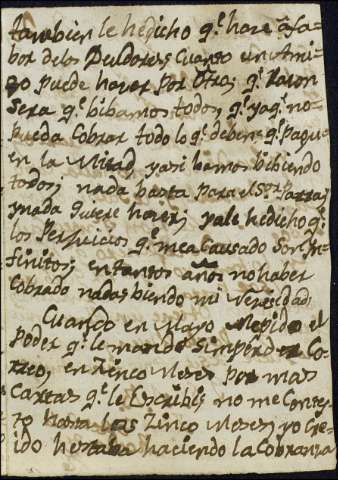 tambien le he dicho q.e hare â fa
bor de los Deudores Cuanto un Ami
go puede hacer por Otro; q.e Racon
Sera q.e bibamos todos, q.e ya q.e no
pueda Cobrar todo lo q.e deben q.e pague
en la Mitad, y asi hamos bibiendo
todos; nada basta para el S.or
y nada quiere hacer; ya le he dicho q.e
los Perjuicios q.e me a Causado Son Yn
finitos; en tantos años no haber
Cobrado nada sbiendo mi Necesidad
Cuando en Mayo Me pidio el
poder q.e le mande Sin perder Co
rreo, en Zinco Meses por mas
Cartas q.e le Escribi, no me Contes
to hasta los Zinco Meses, yo Cre
ido hestaba haciendo la Cobranza